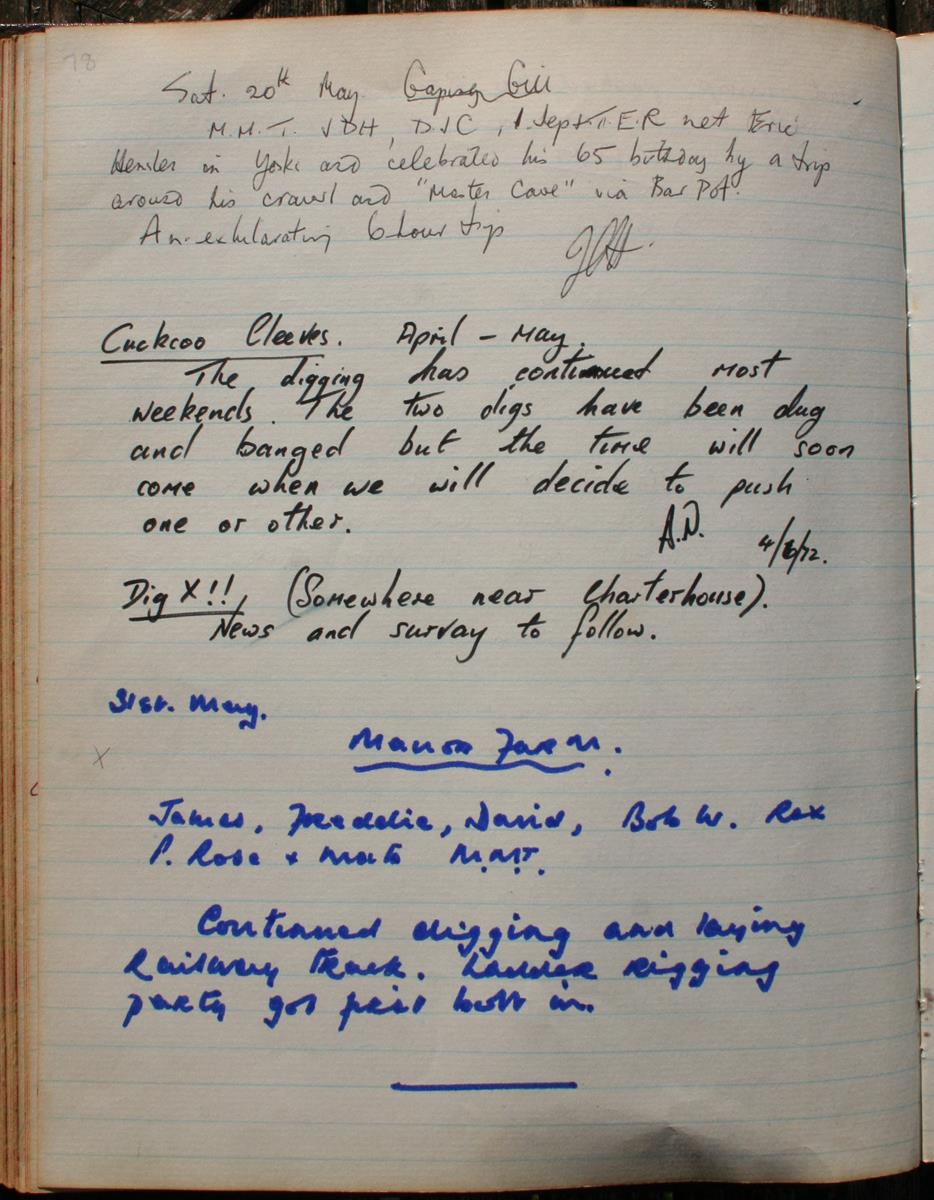 78
Sat. 20th May Gaping Gill
M.M.T. JDH, D.J.C, T.E.R met Eric
Hensler in Yorks and celebrated his 65 birthday by a trip
around his crawl and "Master Cave" via Bar Pot.
An exhilarating 6 hour trip
Cuckoo Cleeves. April - May.
The digging has continued most
weekends. The two digs have been dug
and banged but the time will soon
come when we will decide to push
one or other.
A.D. 4/6/72.
Dig X!! (Somewhere near Charterhouse).
News and survay to follow.
31st. May.
X
Manor Farm.
James, Freddie, David, Bob W. Rex
P. Rose + mate M.M.T.
Continued digging and laying
Railway Track. Ladder rigging
party got first bolt in.